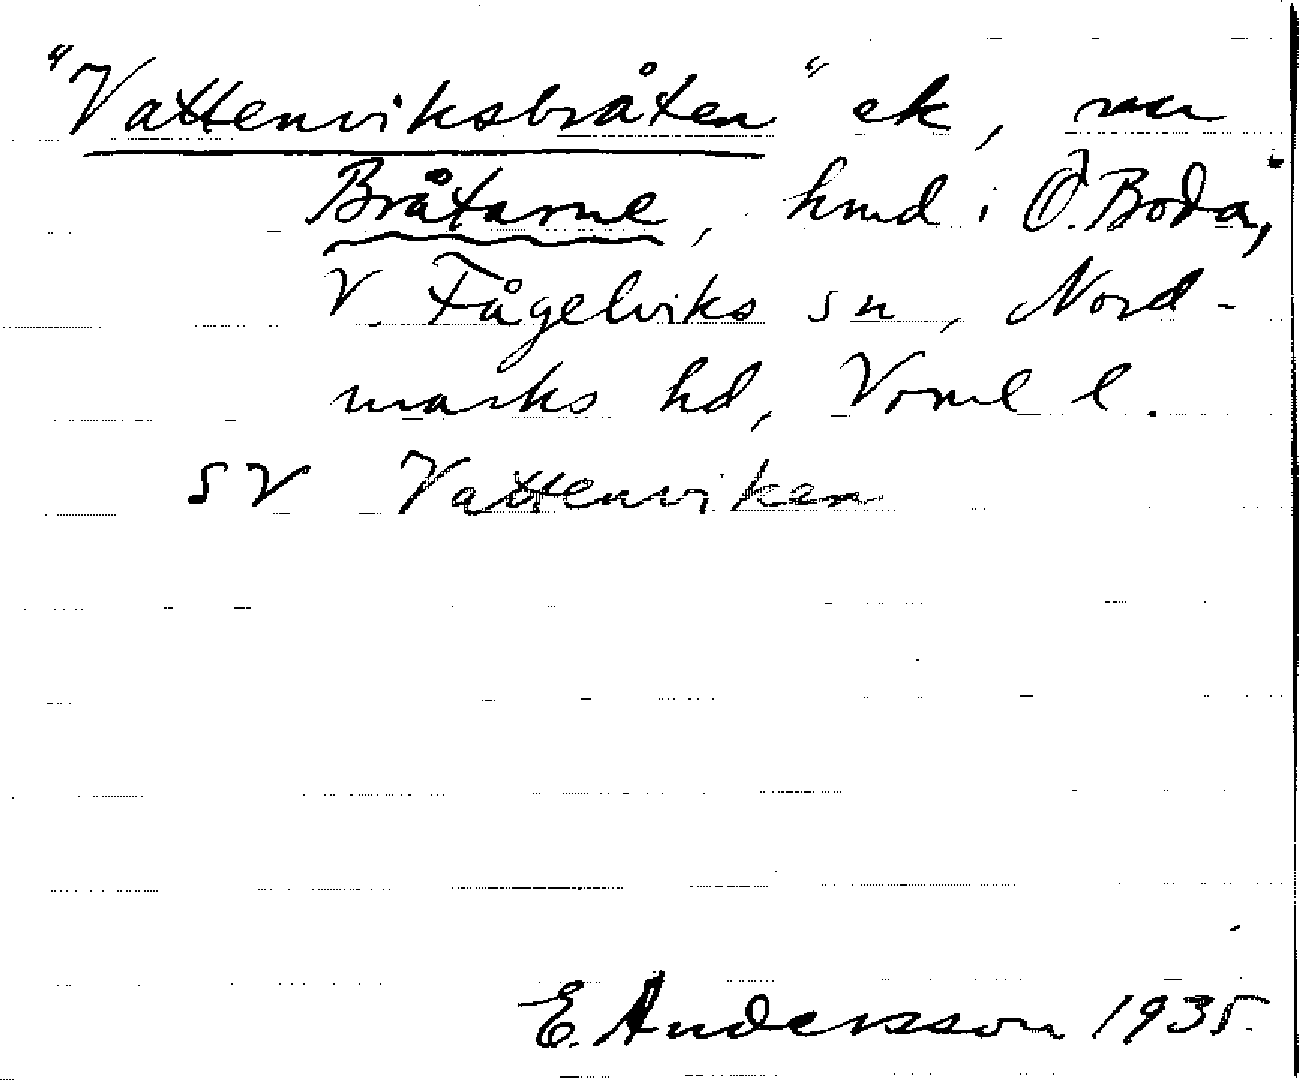 "Vattenviksbråten" ek, nu
Bråtarne, hmd i Ö. Boda,
V. Fågelviks sn, Nord-
marks hd, Vrml l.
SV Vattenviken
E. Andersson 1935.